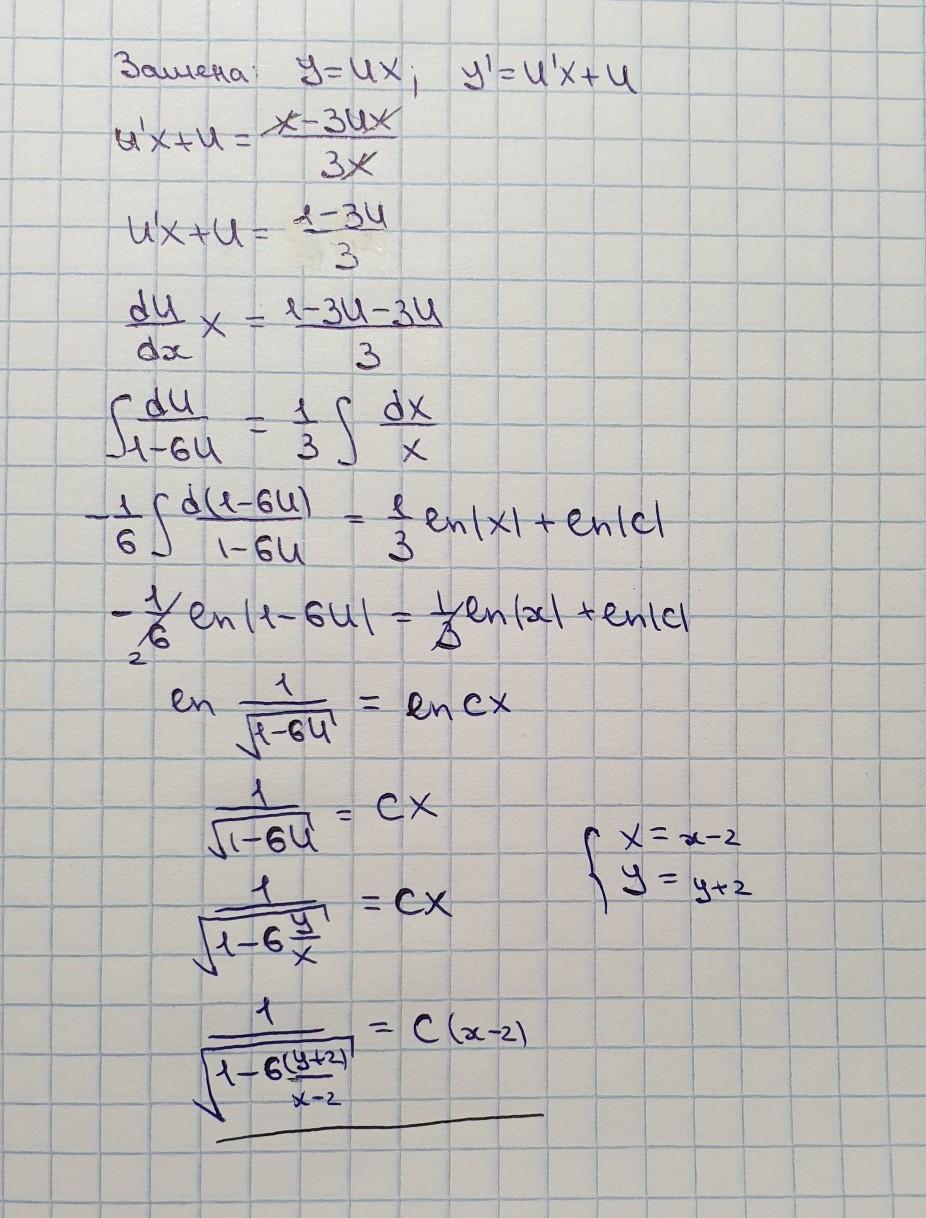 Замена: y=ux; y'=u'x+u
u'x+u = (x-3ux)/(3x)
u'x+u = (1-3u)/3
du/dx x = (1-3u-3u)/3
∫ du/(1-6u) = 1/3 ∫ dx/x
-1/6 ∫ d(1-6u)/(1-6u) = 1/3 ln|x| + ln|c|
-1/6 ln|1-6u| = 1/3 ln|x| + ln|c|
2
ln 1/√(1-6u) = ln cx
1/√(1-6u) = cx
{ x = x-2
y = y+2
1/√(1-6 y/x) = cx
1/√(1-6 (y+2)/(x-2)) = c(x-2)